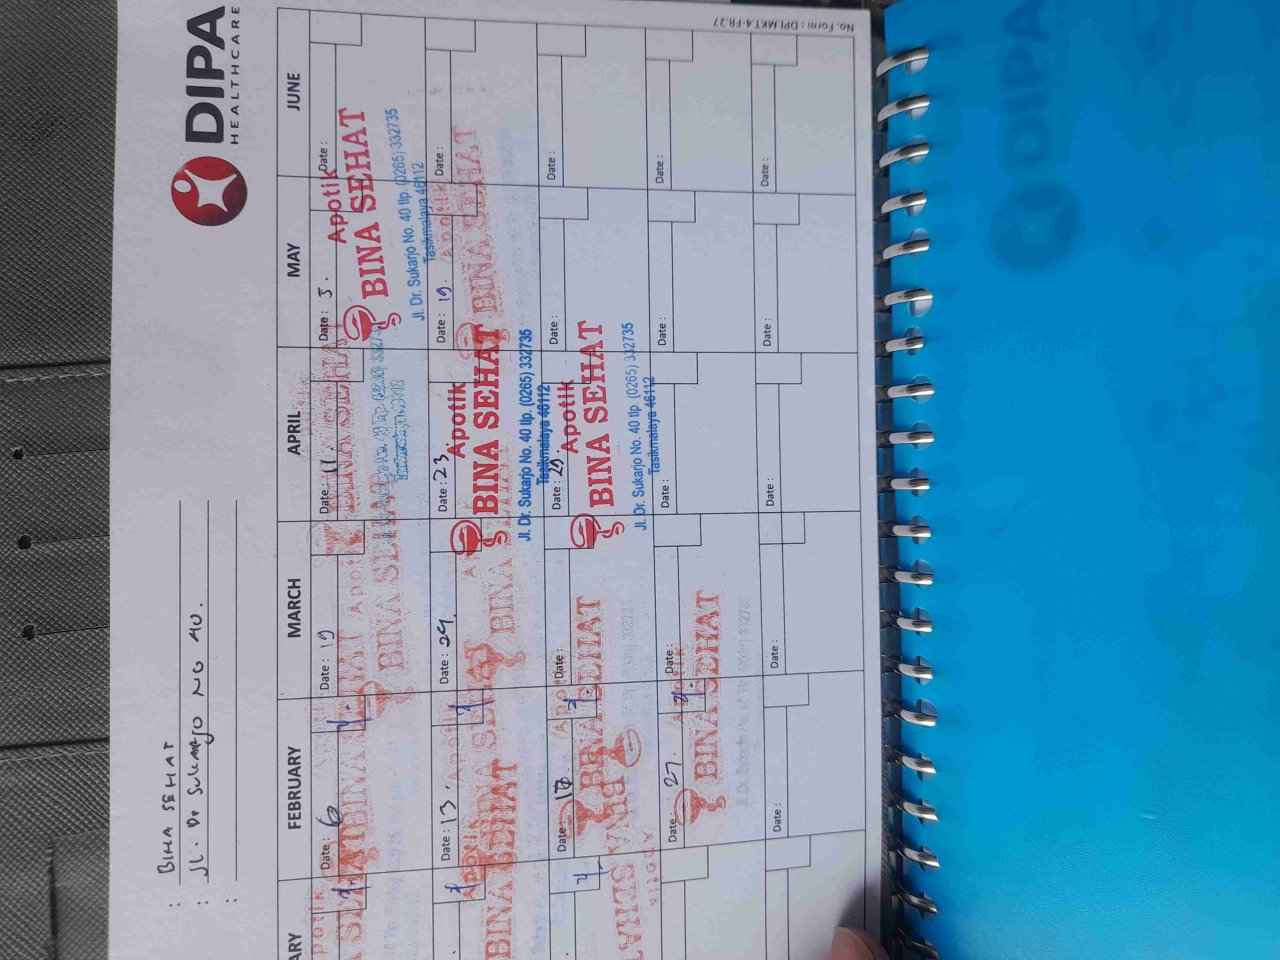 DIPA
HEALTHCARE
: BINA SEHAT
: JL. Dr SUKARJO NO 40.
:
ARY
FEBRUARY
MARCH
APRIL
MAY
JUNE
Date: 6
Date: 19
Date: 11.
Date: 3.
Date:
Apotik
BINA SEHAT
Jl. Dr. Sukarjo No. 40 tlp. (0265) 332735
Tasikmalaya 46112
Date: 13.
Date: 24.
Date: 23.
Date: 19.
Date:
Apotik
BINA SEHAT
Jl. Dr. Sukarjo No. 40 tlp. (0265) 332735
Tasikmalaya 46112
BINA SEHAT
Date:
Date:
Date: 29.
Date:
Date:
Apotik
BINA SEHAT
Jl. Dr. Sukarjo No. 40 tlp. (0265) 332735
Tasikmalaya 46112
BINA SEHAT
Date: 27.
Date:
Date:
Date:
Date:
BINA SEHAT
Date:
Date:
Date:
Date:
Date:
No. Form : DPI.MKT.4-FR.27
DIPA